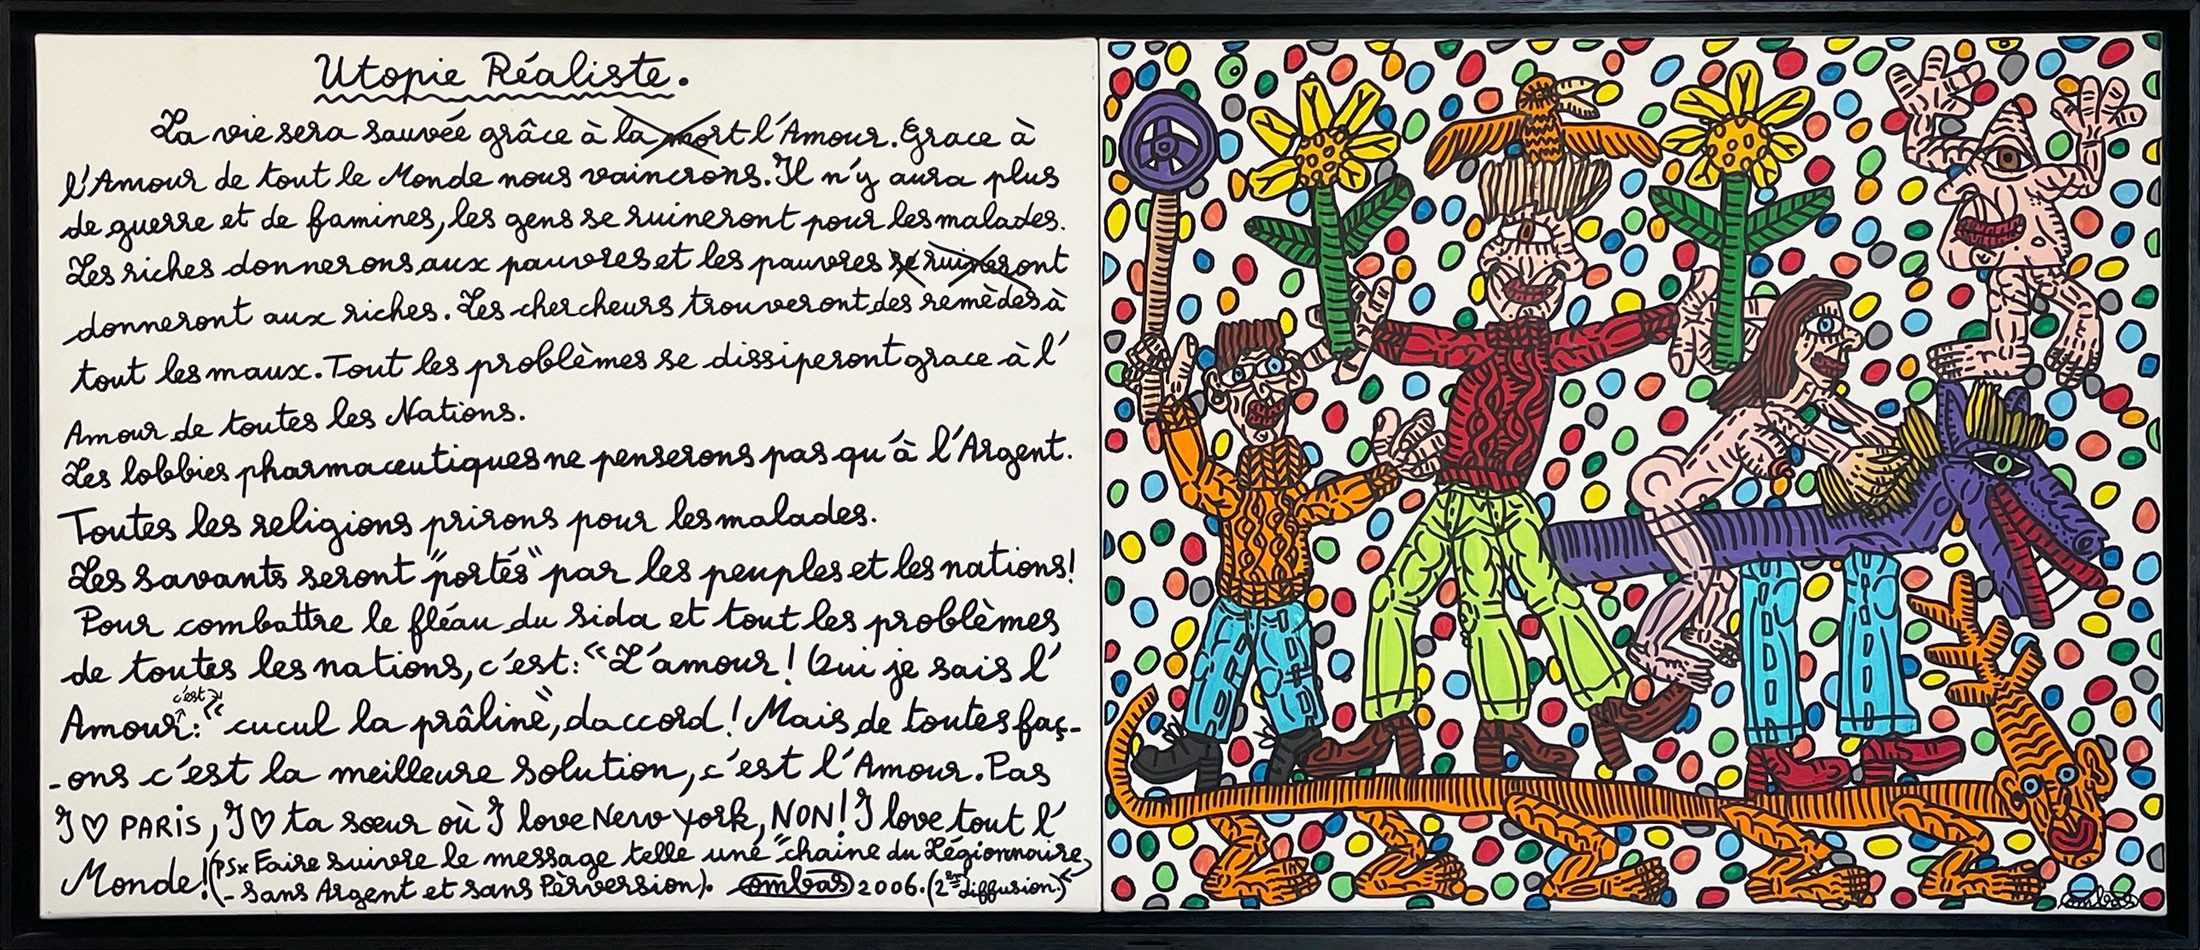 Utopie Réaliste.
La vie sera sauvée grâce à la mort l'Amour. Grace à
l'Amour de tout le Monde nous vaincrons. Il n'y aura plus
de guerre et de famines, les gens se ruineront pour les malades.
Les riches donnerons aux pauvres et les pauvres se ruineront
donneront aux riches. Les chercheurs trouveront des remèdes à
tout les maux. Tout les problèmes se dissiperont grace à l'
Amour de toutes les Nations.
Les lobbies pharmaceutiques ne penserons pas qu'à l'Argent.
Toutes les religions prirons pour les malades.
Les savants seront "portés" par les peuples et les nations!
Pour combattre le fléau du sida et tout les problèmes
de toutes les nations, c'est: "L'amour! Oui je sais l'
c'est
Amour: "cucul la prâline", daccord! Mais de toutes faç-
-ons c'est la meilleure solution, c'est l'Amour. Pas
I ♡ PARIS, I ♡ ta sœur où I love New york, NON! I love tout l'
Monde! (PS x Faire suivre le message telle une "chaine du Légionnaire,
- sans Argent et sans Pèrversion). combas 2006. (2e diffusion.)
combas